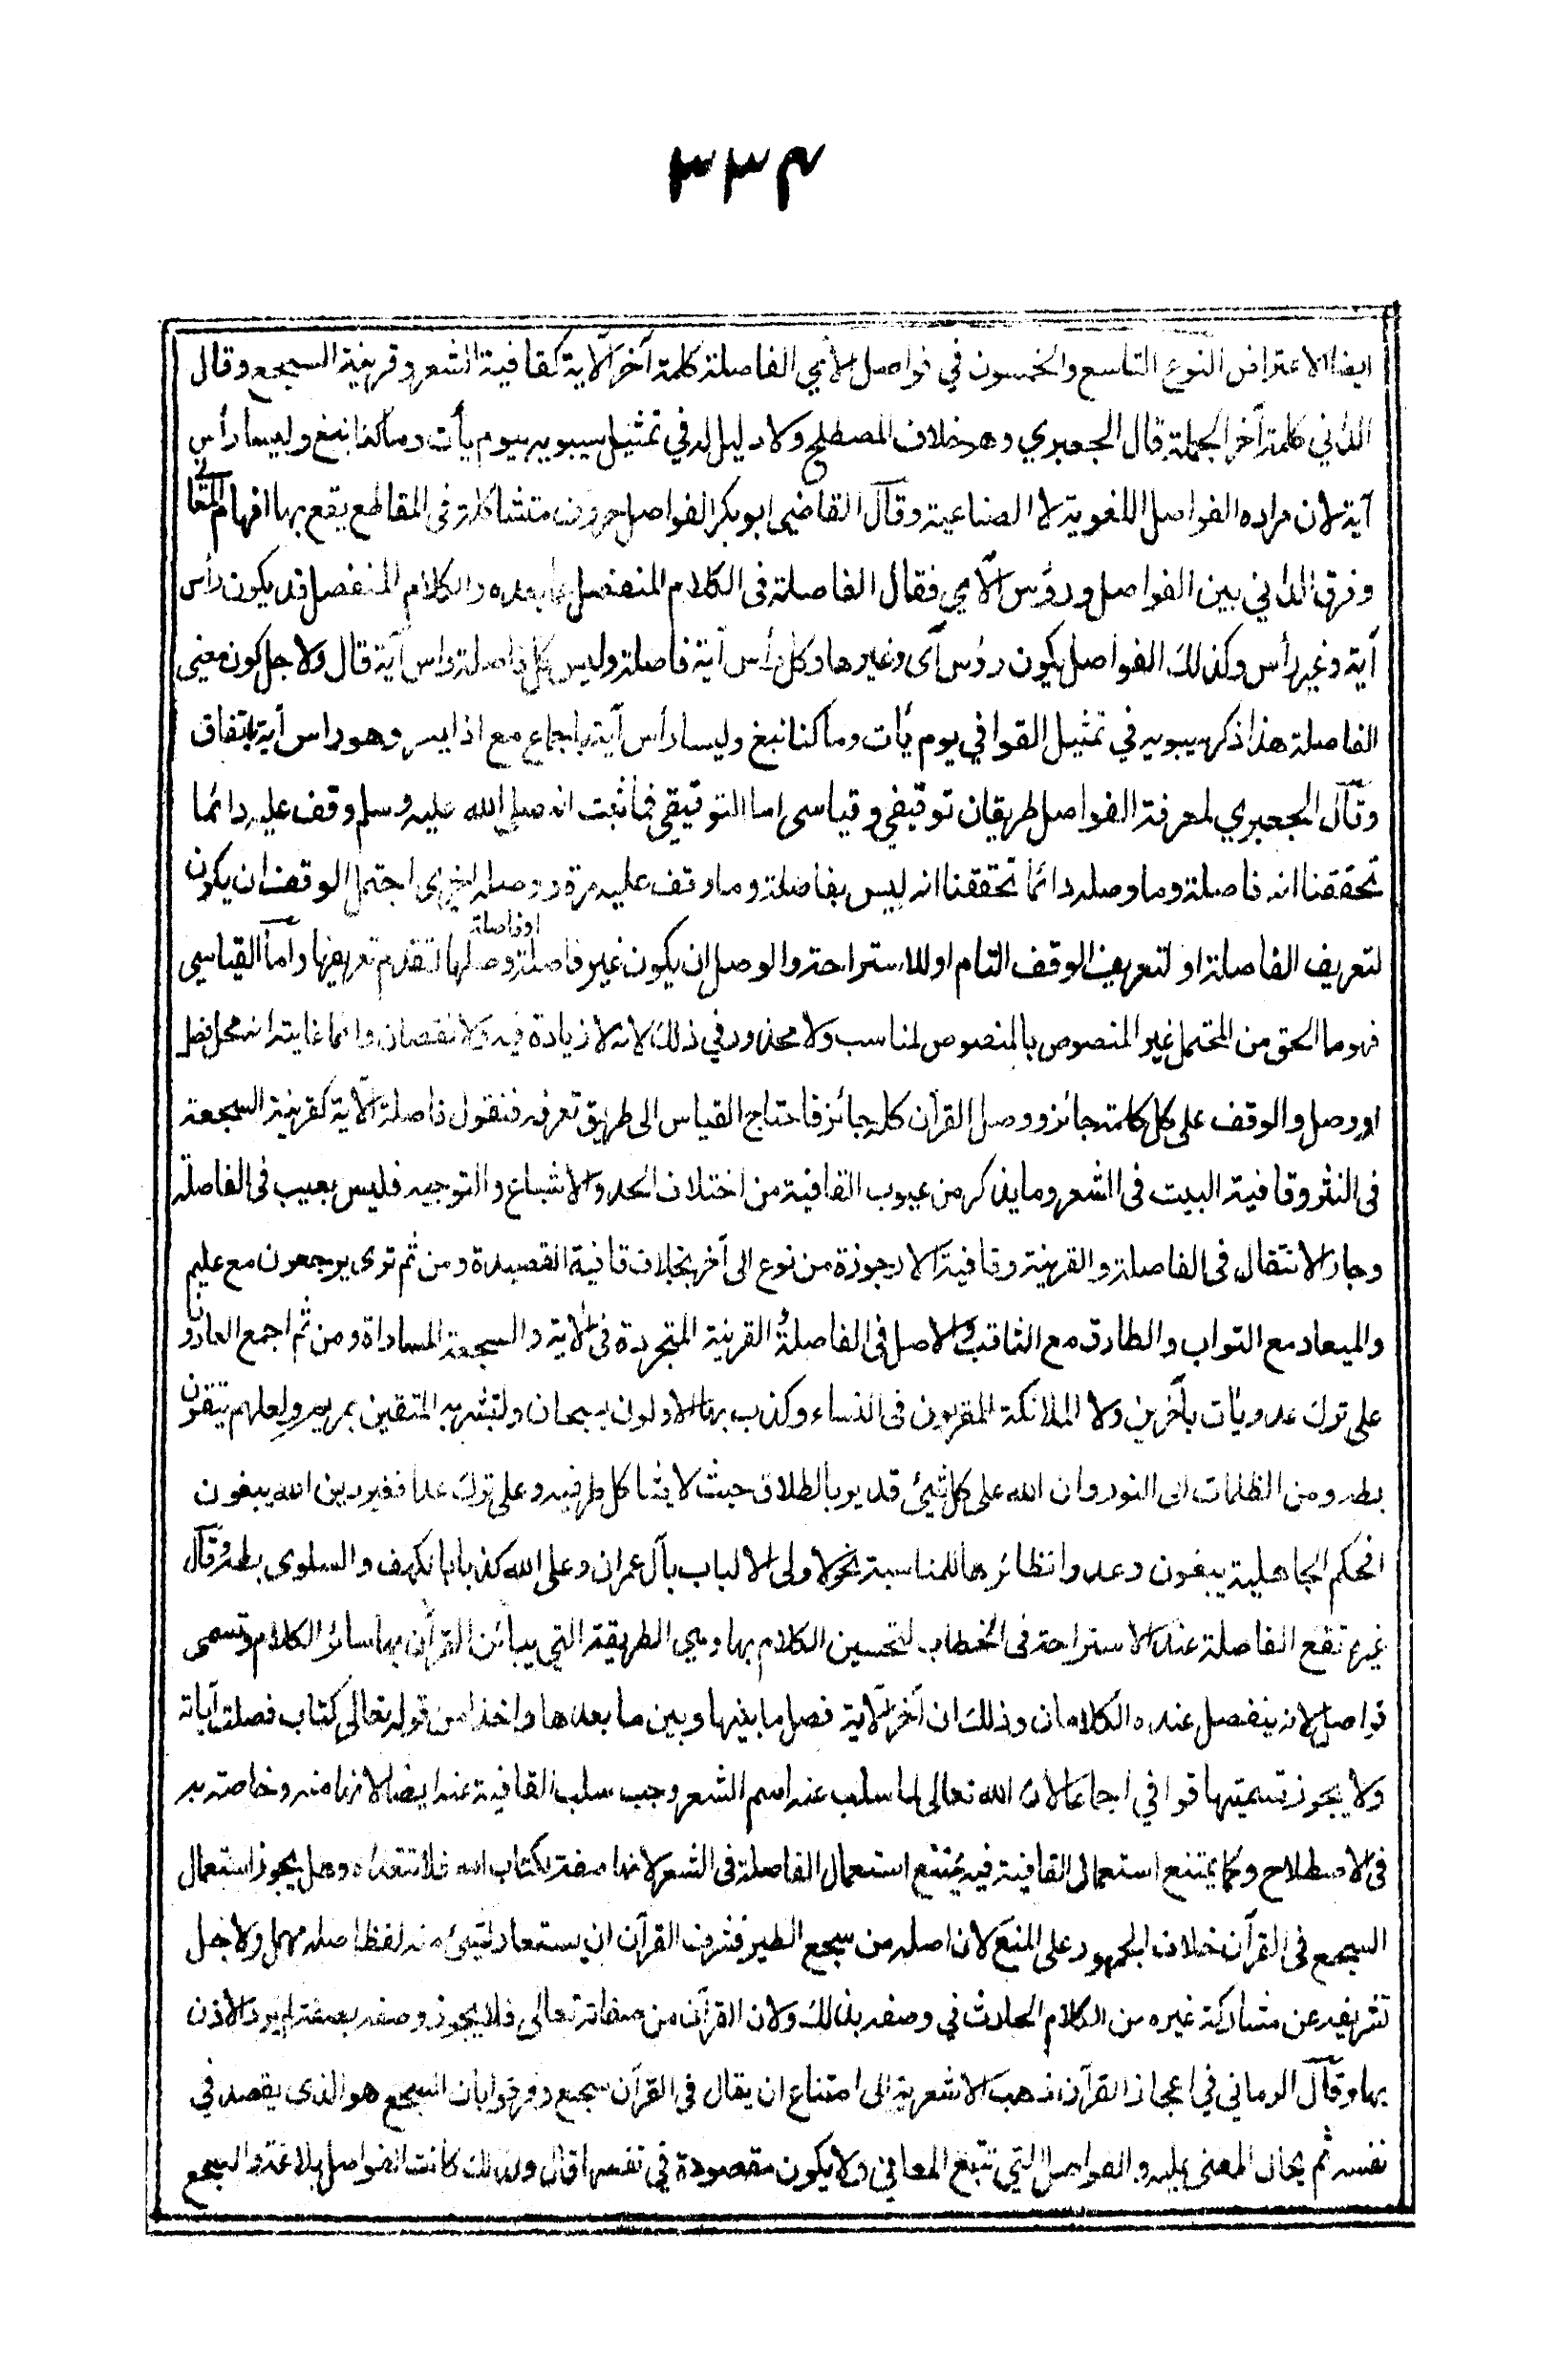 ٣٣٤
ايضا الاعتراض النوع التاسع والخمسون في فواصل الآي الفاصلة كلمة آخر الآية كقافية الشعر وقرينة السجع وقال
الداني كلمة آخر الجملة قال الجعبري وهو خلاف المصطلح ولا دليل له في تمثيل سيبويه بيوم يأت وما كنا نبغ وليسا رأس
آية لان مراده الفواصل اللغوية لا الصناعية وقال القاضي ابو بكر الفواصل حروف متشاكلة في المقاطع يقع بها افهام المعاني
وفرق الداني بين الفواصل ورؤس الآي فقال الفاصلة في الكلام المنفصل مما بعده والكلام المنفصل قد يكون رأس
آية وغير رأس وكذلك الفواصل يكون رؤس آى وغيرها وكل رأس آية فاصلة وليس كل فاصلة راس آية قال ولاجل كون معنى
الفاصلة هذا ذكر سيبويه في تمثيل القوافي يوم يأت وما كنا نبغ وليسا رأس آية باجماع مع اذا يسر وهو راس آية باتفاق
وقال الجعبري لمعرفة الفواصل طريقان توقيفي وقياسى اما التوقيفى فما ثبت انه صلى الله عليه وسلم وقف عليه دائما
تحققنا انه فاصلة وما وصله دائما تحققنا انه ليس بفاصلة وما وقف عليه مرة ووصله اخرى احتمل الوقف ان يكون
لتعريف الفاصلة او لتعريف الوقف التام او للاستراحة والوصل ان يكون غير فاصلة او فاصلة وصلها لتقدم تعريفها واما القياسي
فهو ما الحق من المحتمل غير المنصوص بالمنصوص لمناسب ولا محذور في ذلك لانه لا زيادة فيه ولا نقصان وانما غايته انه محل فصل
او وصل والوقف على كل كلمة جائز ووصل القرآن كله جائز فاحتاج القياس الى طريق تعرفه فنقول فاصلة الآية كقرينة السجعة
فى النثر وقافية البيت فى الشعر وما يذكر من عيوب القافية من اختلاف الحد والاشباع والتوجيه فليس بعيب فى الفاصلة
وجاز الانتقال فى الفاصلة والقرينة وقافية الارجوزة من نوع الى آخر بخلاف قافية القصيدة ومن ثم ترى يرجعون مع عليم
والميعاد مع الثواب والطارق مع الثاقب والاصل فى الفاصلة القرينة المتجردة فى الآية والسجعة المساواة ومن ثم اجمع العادون
على ترك عد ويأت بآخرين ولا الملائكة المقربون فى النساء وكذب بها الاولون بسبحان ولتبشر به المتقين بمريم ولعلهم يتقون
بطه ومن الظلمات الى النور وان الله على كل شيئ قدير بالطلاق حيث لا يشاكل طرفيه وعلى ترك عد افغير دين الله يبغون
افحكم الجاهلية يبغون وعدوا نظائرها للمناسبة نحو لاولى الالباب بآل عمران وعلى الله كذبا بالكهف والسلوى بطه وقال
غيره تقع الفاصلة عند الاستراحة فى الخطاب لتحسين الكلام بها وهي الطريقة التي يباين القرآن بها سائر الكلام وتسمى
فواصل لانه ينفصل عنده الكلامان وذلك ان آخر الآية فصل ما بينها وبين ما بعدها واخذا من قوله تعالى كتاب فصلت آياته
ولا يجوز تسميتها قوافي اجماعا لان الله تعالى لما سلب عنه اسم الشعر وجب سلب القافية عنه ايضا لانها منه وخاصة به
فى الاصطلاح وكما يمتنع استعمال القافية فيه يمتنع استعمال الفاصلة فى الشعر لانها صفة لكتاب الله فلا تتعداه وهل يجوز استعمال
السجع فى القرآن خلاف الجمهور على المنع لان اصله من سجع الطير فشرف القرآن ان يستعار لشئ منه لفظ اصله مهمل ولاجل
تشريفه عن مشاركة غيره من الكلام الحادث في وصفه بذلك ولان القرآن من صفاته تعالى فلا يجوز وصفه بصفة لم يرد الاذن
بها وقال الرماني في اعجاز القرآن ذهب الاشعرية الى امتناع ان يقال فى القرآن سجع وفرقوا بان السجع هو الذى يقصد في
نفسه ثم يحال المعنى عليه والفواصل التي تتبع المعاني ولا يكون مقصودة في نفسها قال ولذلك كانت الفواصل بلاغة والسجع